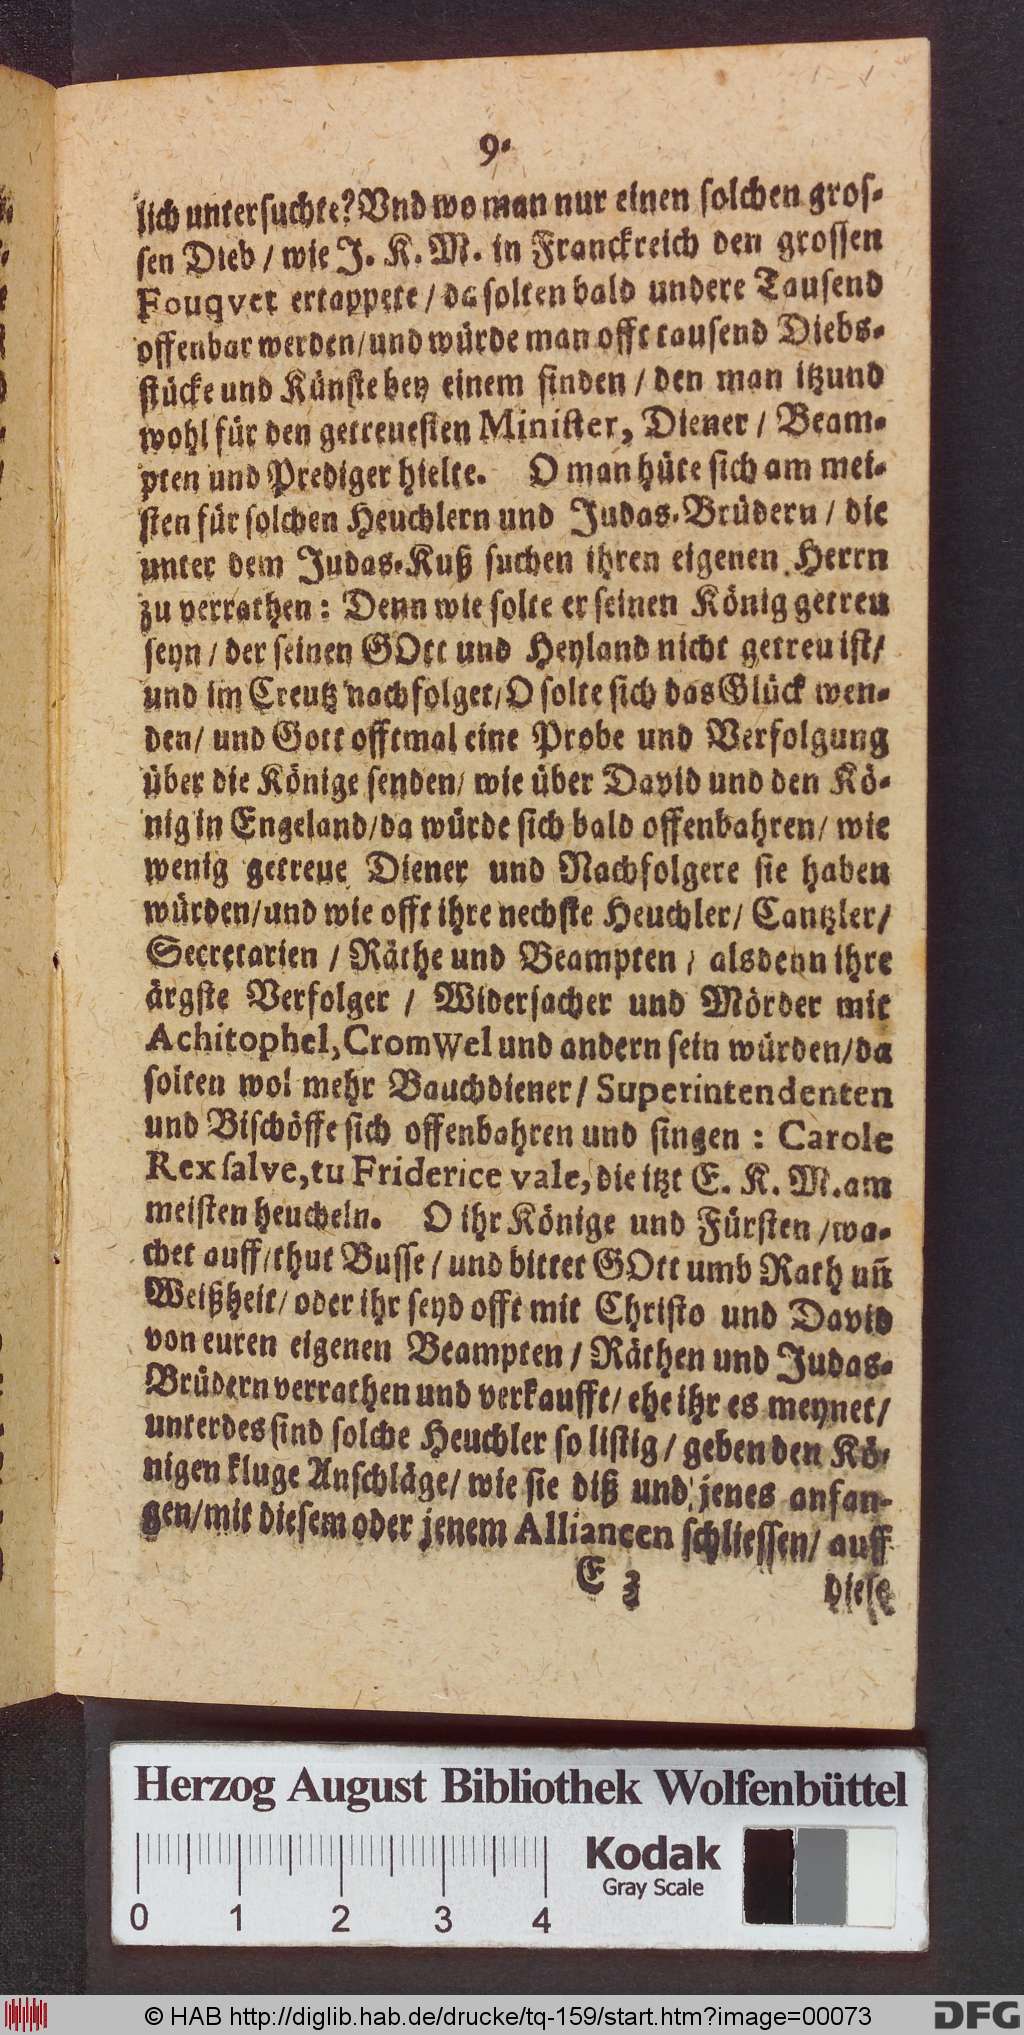 9.
lich untersuchte? Vnd wo man nur einen solchen gros-
sen Dieb / wie J. K. M. in Franckreich den grossen
Fouqvet ertappete / da solten bald undere Tausend
offenbar werden / und würde man offt tausend Diebs-
stücke und Künste bey einem finden / den man itzund
wohl für den getreuesten Minister, Diener / Beam-
pten und Prediger hielte. O man hüte sich am mei-
sten für solchen Heuchlern und Judas-Brüdern / die
unter dem Judas-Kuß suchen ihren eigenen Herrn
zu verrathen: Denn wie solte er seinen König getreu
seyn / der seinen GOtt und Heyland nicht getreu ist /
und im Creutz nachfolget / O solte sich das Glück wen-
den / und Gott offtmal eine Probe und Verfolgung
über die Könige senden / wie über David und den Kö-
nig in Engeland / da würde sich bald offenbahren / wie
wenig getreue Diener und Nachfolgere sie haben
würden / und wie offt ihre nechste Heuchler / Cantzler /
Secretarien / Räthe und Beampten / alsdenn ihre
ärgste Verfolger / Widersacher und Mörder mit
Achitophel, CromWel und andern sein würden / da
solten wol mehr Bauchdiener / Superintendenten
und Bischöffe sich offenbahren und singen : Carole
Rex salve, tu Friderice vale, die itzt E. K. M. am
meisten heucheln. O ihr Könige und Fürsten / wa-
chet auff / thut Busse / und bittet GOtt umb Rath un̄
Weißheit / oder ihr seyd offt mit Christo und David
von euren eigenen Beampten / Räthen und Judas-
Brüdern verrathen und verkaufft / ehe ihr es meynet /
unterdes sind solche Heuchler so listig / geben den Kö-
nigen kluge Anschläge / wie sie diß und jenes anfan-
gen / mit diesem oder jenem Alliancen schliessen / auff
E 3 diese
Herzog August Bibliothek Wolfenbüttel
Kodak
Gray Scale
0 1 2 3 4
© HAB http://diglib.hab.de/drucke/tq-159/start.htm?image=00073
DFG